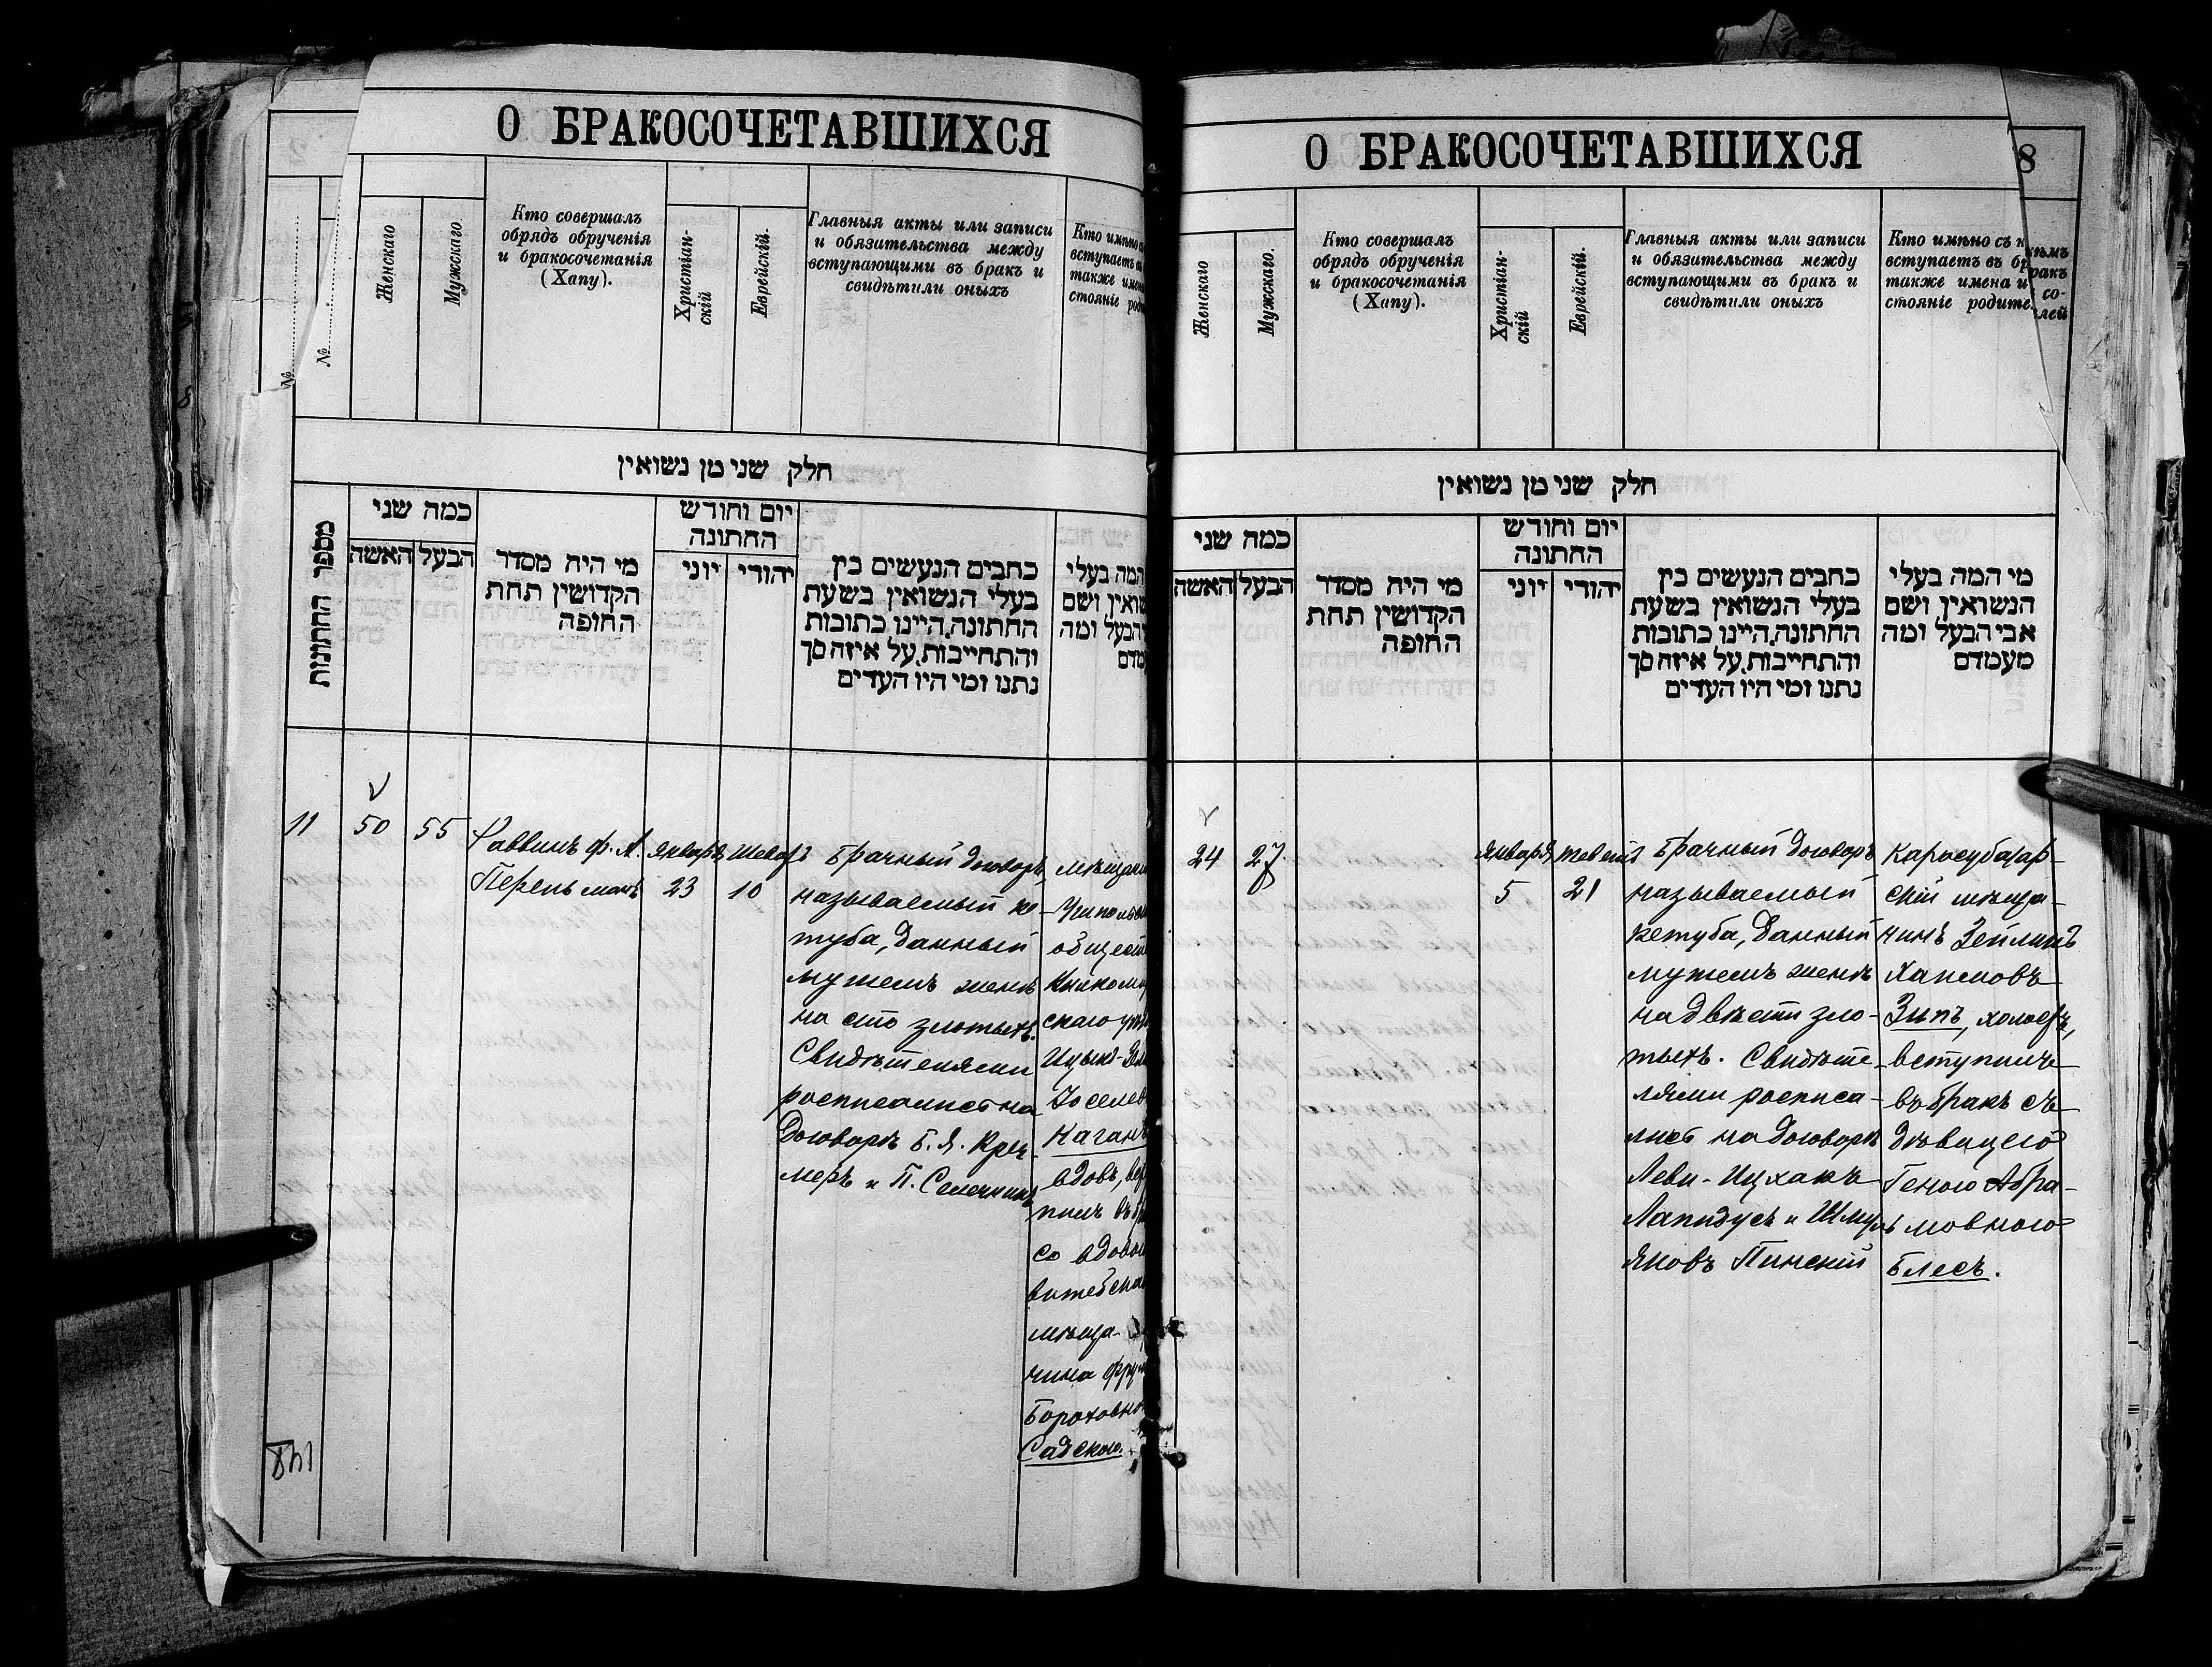 О БРАКОСОЧЕТАВШИХСЯ
№
№
Женскаго
Мужскаго
Кто совершалъ
обрядъ обрученія
и бракосочетанія
(Хапу).
Христіан-
скій
Еврейскій.
Главныя акты или записи
и обязательства между
вступающими въ бракъ и
свидѣтили оныхъ
Кто имѣно
вступаетъ
также имена
стояніе
חלק שני מן נשואין
מספר החתונות
כמה שני
האשה
הבעל
מי היה מסדר
הקדושין תחת
החופה
יום וחודש
החתונה
יוני
יהודי
כתבים הנעשים בין
בעלי הנשואין בשעת
החתונה, היינו כתובות
והתחייבות, על איזה סך
נתנו ומי היו העדים
המה בעלי
ושם
הבעל ומה
11
50
55
Раввинъ Ф. А.
Перельманъ
Январь
23
Шеватъ
10
Брачный договоръ,
называемый ке-
туба, данный
мужемъ женѣ
на сто злотыхъ.
Свидѣтелями
росписались на
договорѣ Б. Я. Кре-
меръ и П. Селечникъ
Ицыкъ-
Каганъ
вдовъ,
со вдовою
мѣща-
нина
Бороховно
Садскою.
148
О БРАКОСОЧЕТАВШИХСЯ
8
Женскаго
Мужскаго.
Кто совершалъ
обрядъ обрученія
и бракосочетанія
(Хапу).
Христіан-
скій
Еврейскій.
Главныя акты или записи
и обязательства между
вступающими въ бракъ и
свидѣтили оныхъ
Кто имѣно съ кѣмъ
вступаетъ въ бракъ
также имена и со-
стояніе родителей
חלק שני מן נשואין
כמה שני
האשה
הבעל
מי היה מסדר
הקדושין תחת
החופה
יום וחודש
החתונה
יוני
יהודי
כתבים הנעשים בין
בעלי הנשואין בשעת
החתונה, היינו כתובות
והתחייבות, על איזה סך
נתנו ומי היו העדים
מי המה בעלי
הנשואין, ושם
אבי הבעל ומה
מעמדם
24
27
Января
5
Тевета
21
Брачный договоръ
называемый
кетуба, данный
мужемъ женѣ
на двѣсти зло-
тыхъ. Свидѣте-
лями росписа-
лись на договорѣ
Леви-Ицхакъ
Лапидусъ и Шмуль
Яновъ Пинскій
Карасубазар-
скій мѣща-
нинъ Зейликъ
Хаимовъ
Зипъ, холостъ,
вступилъ
въ бракъ съ
дѣвицею
Геною Абра-
мовною
Блесъ.